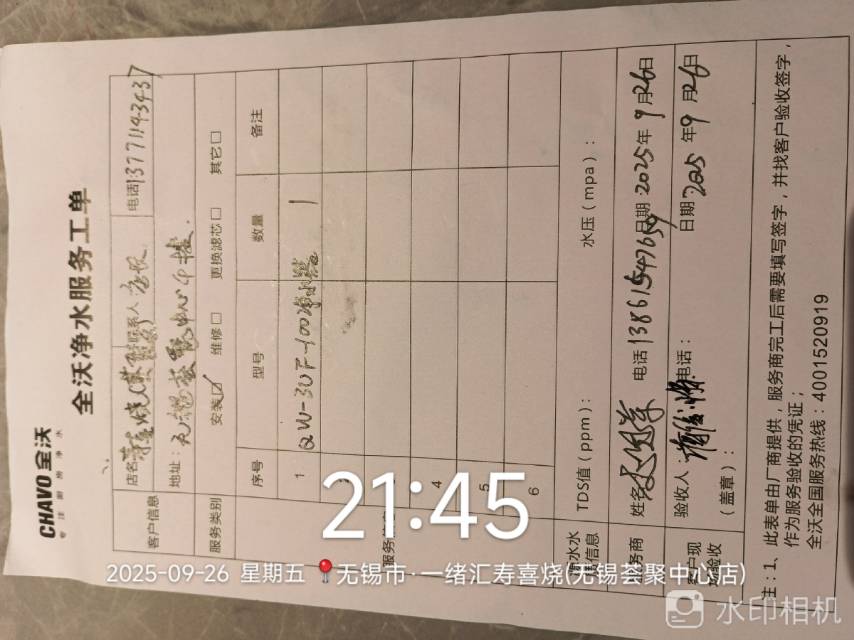 CHAVO 全沃
专注厨房净水
全沃净水服务工单
客户信息 店名 寿喜烧 联系人 电话 13771143437
地址: 无锡荟聚中心4楼
服务类别 安装☑ 维修□ 更换滤芯□ 其它□
序号 型号 数量 备注
1 QW-3UF-100净水器 1
4
5
6
TDS值(ppm): 水压(mpa):
服务商 姓名 电话 13861547659 日期 2025年9月26日
客户现场验收 验收人: 电话: 日期 2025年9月26日
(盖章):
注:1、此表单由厂商提供,服务商完工后需要填写签字,并找客户验收签字,
作为服务验收的凭证;
全沃全国服务热线:4001520919
21:45
2025-09-26 星期五 无锡市·一绪汇寿喜烧(无锡荟聚中心店)
水印相机